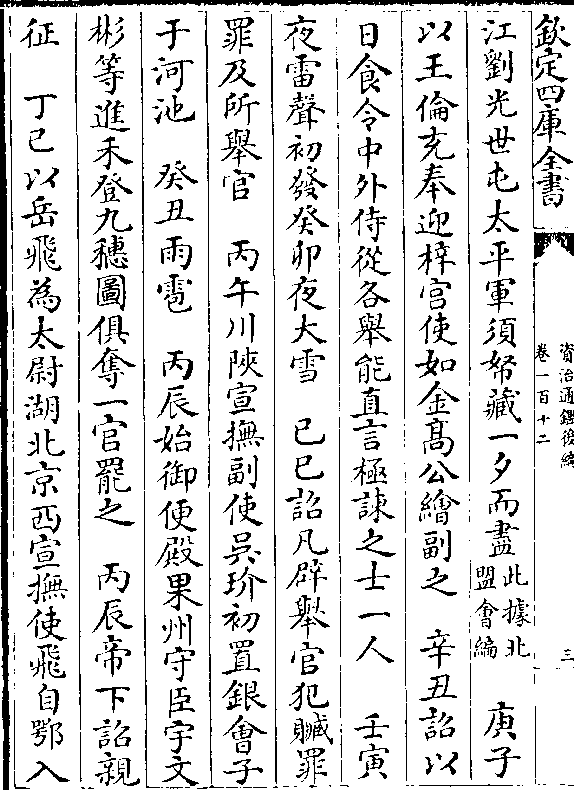 欽定四庫全書
資治通鑑後編
卷一百十二
三
江劉光世屯太平軍須帑藏一夕而盡此據北盟會編 庚子
以王倫充奉迎梓宮使如金高公繪副之 辛丑詔以
日食令中外侍從各舉能直言極諫之士一人 壬寅
夜雷聲初發癸卯夜大雪 己巳詔凡辟舉官犯贓罪
罪及所舉官 丙午川陜宣撫副使吳玠初置銀會子
于河池 癸丑雨雹 丙辰始御便殿果州守臣宇文
彬等進禾登九穗圖俱奪一官罷之 丙辰帝下詔親
征 丁巳以岳飛為太尉湖北京西宣撫使飛自鄂入